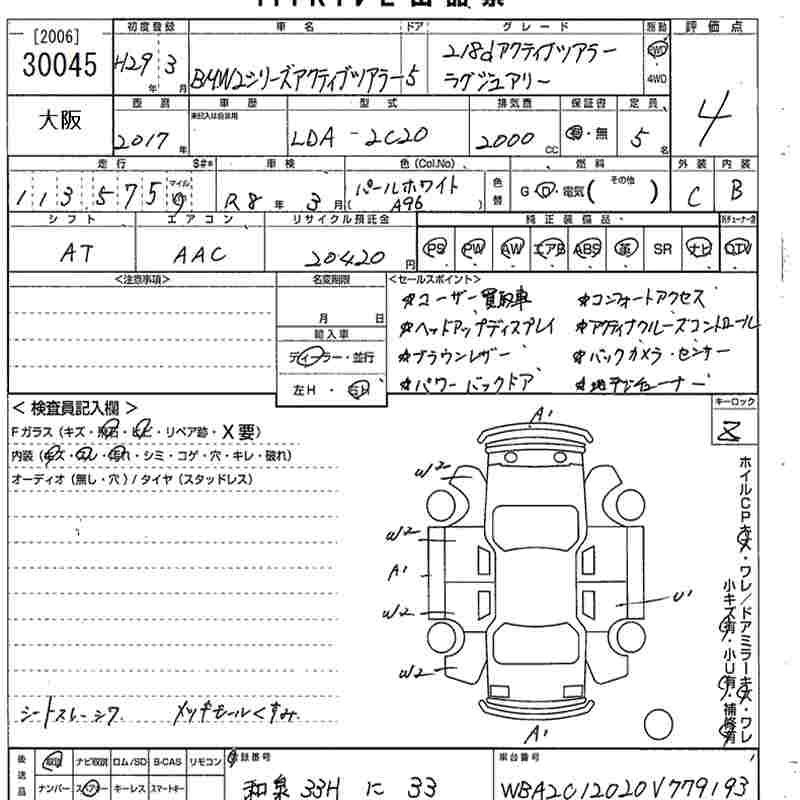 [2006]
30045
大阪
初度登録 車名 ドア グレード 駆動 評価点
H29年 3月 BMW2シリーズアクティブツアラー 5 218dアクティブツアラー
ラグジュアリー
2WD
4WD
4
車歴 型式 排気量 保証書 定員
未記入は自家用
2017年 LDA-2C20 2000CC 有・無 5名
走行 S#* 車検 色(Col.No) 色替 燃料 外装 内装
113579 マイル R8年 3月 パールホワイト
(A96) G・D・電気( その他 ) C B
シフト エアコン リサイクル預託金 純正装備品
AT AAC 20420円 PS PW AW エアB ABS 革 SR ナビ DTV
<注意事項> 名変期限 <セールスポイント>
月 日
輸入車
ディーラー・並行
左H・右H
*ユーザー買取車 *コンフォートアクセス
*ヘッドアップディスプレイ *アクティブクルーズコントロール
*ブラウンレザー *バックカメラ・センサー
*パワーバックドア *地デジチューナー
キーロック
<検査員記入欄>
Fガラス(キズ・飛石・ヒビ・リペア跡・X要)
内装(キズ・スレ・汚れ・シミ・コゲ・穴・キレ・破れ)
オーディオ(無し・穴)/タイヤ(スタッドレス)
A1
W2
W2
A1
W2
U1
W2
A1
ホイルCPキズ・ワレ/ドアミラーキズ・ワレ
小キズ有・小U有・補修有
シートスレ・シワ メッキモールくすみ
後送品 取説 ナビ取説 ロム/SD B-CAS リモコン
ナンバー スペアキー キーレス スマートキー
登録番号 車台番号
和泉 33H に 33 WBA2C12020V779193